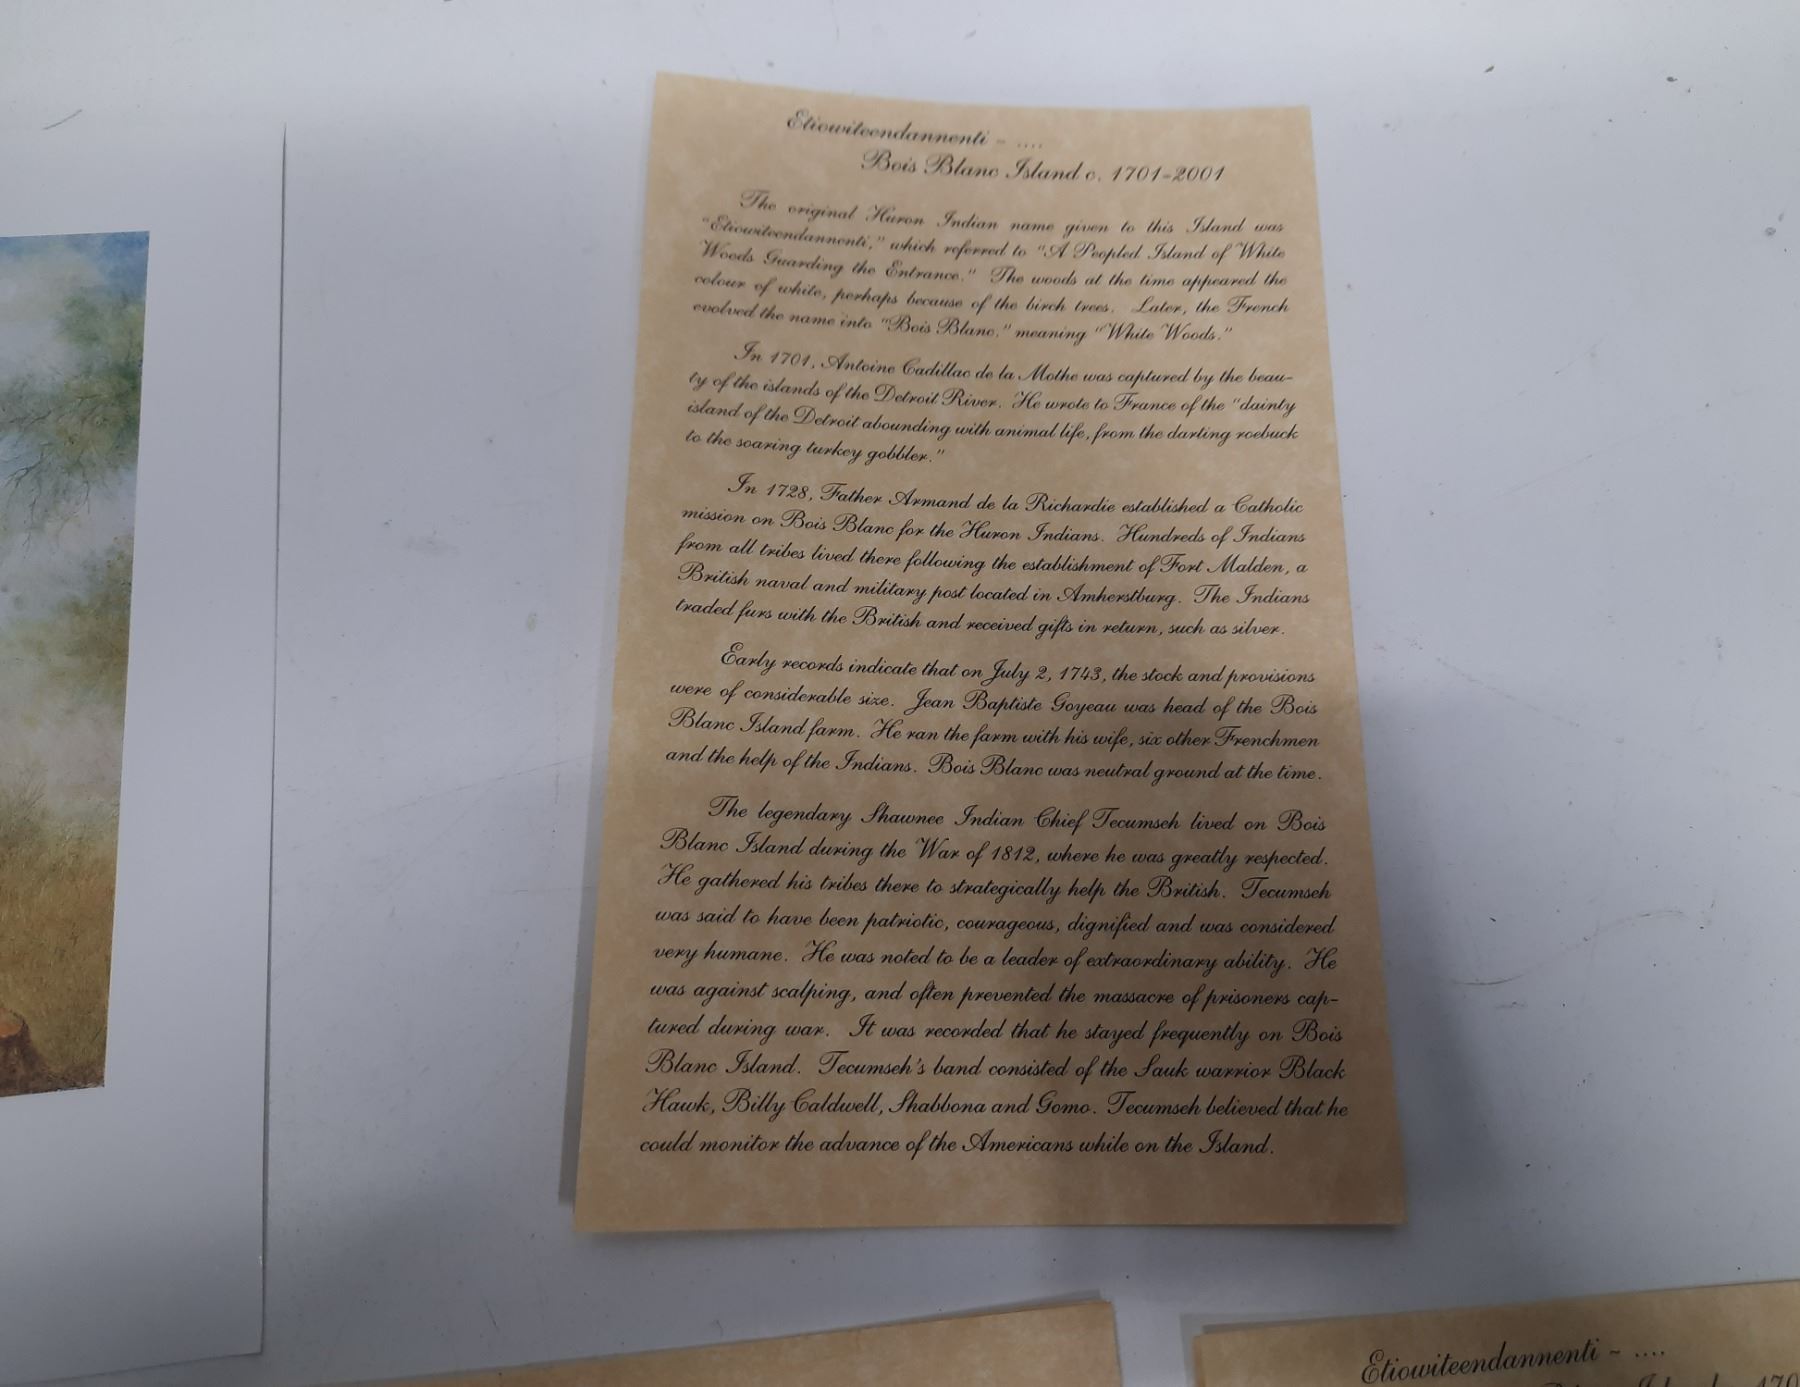 Etiowiteendannenti ~ ....
Bois Blanc Island c. 1701-2001
The original Huron Indian name given to this Island was
"Etiowiteendannenti," which referred to "A Peopled Island of White
Woods Guarding the Entrance." The woods at the time appeared the
colour of white, perhaps because of the birch trees. Later, the French
evolved the name into "Bois Blanc," meaning "White Woods."
In 1701, Antoine Cadillac de la Mothe was captured by the beau-
ty of the islands of the Detroit River. He wrote to France of the "dainty
island of the Detroit abounding with animal life, from the darling roebuck
to the soaring turkey gobbler."
In 1728, Father Armand de la Richardie established a Catholic
mission on Bois Blanc for the Huron Indians. Hundreds of Indians
from all tribes lived there following the establishment of Fort Malden, a
British naval and military post located in Amherstburg. The Indians
traded furs with the British and received gifts in return, such as silver.
Early records indicate that on July 2, 1743, the stock and provisions
were of considerable size. Jean Baptiste Goyeau was head of the Bois
Blanc Island farm. He ran the farm with his wife, six other Frenchmen
and the help of the Indians. Bois Blanc was neutral ground at the time.
The legendary Shawnee Indian Chief Tecumseh lived on Bois
Blanc Island during the War of 1812, where he was greatly respected.
He gathered his tribes there to strategically help the British. Tecumseh
was said to have been patriotic, courageous, dignified and was considered
very humane. He was noted to be a leader of extraordinary ability. He
was against scalping, and often prevented the massacre of prisoners cap-
tured during war. It was recorded that he stayed frequently on Bois
Blanc Island. Tecumseh's band consisted of the Sauk warrior Black
Hawk, Billy Caldwell, Shabbona and Gomo. Tecumseh believed that he
could monitor the advance of the Americans while on the Island.
Etiowiteendannenti ~ ....